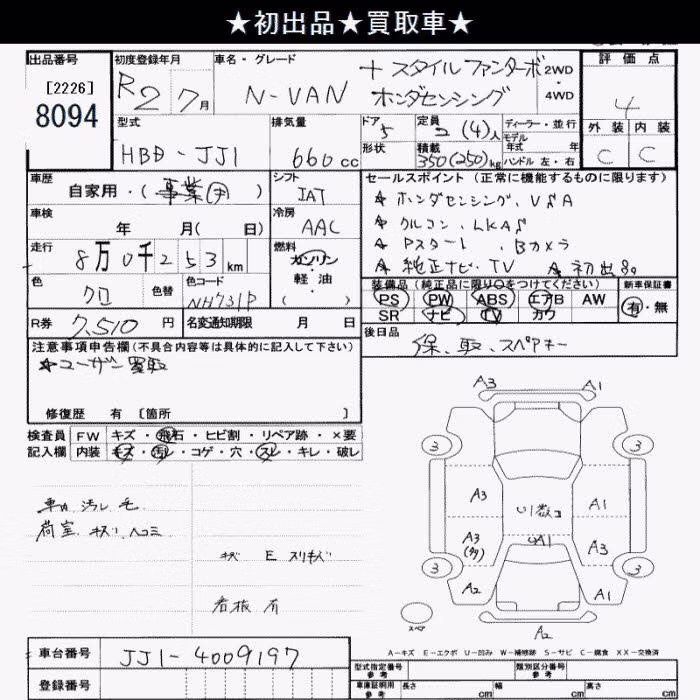 ★初出品★買取車★
出品番号 初度登録年月 車名・グレード 評価点
[2226]
8094
R2 7月 N-VAN +スタイルファンターボ 2WD・4WD
ホンダセンシング
4
型式 排気量 ドア 定員 ディーラー・並行
HBD-JJ1 660cc 5 2(4)人 モデル年式 年式
形状 積載 350(250)kg ハンドル 左・右
外装 内装
C C
車歴 自家用・(事業用) シフト IAT
セールスポイント(正常に機能するものに限ります)
★ホンダセンシング、VSA
★クルコン、LKAS
★Pスタート、Bカメラ
★純正ナビ・TV ★初出品
車検 年 月(日) 冷房 AAC
走行 8万0千253km 燃料 ガソリン・軽油・( )
色 クロ 色替 色コード NH731P
装備品(純正品に限り○をつけてください) 新車保証書
PS PW ABS エアB AW 有・無
SR ナビ TV カワ
R券 7,510円 名変通知期限 月 日
後日品 保、取、スペアキー
注意事項申告欄(不具合内容等は具体的に記入して下さい)
★ユーザー買取
修復歴 有 〔箇所 〕
検査員 FW キズ・飛石・ヒビ割・リペア跡・×要
記入欄 内装 キズ・汚レ・コゲ・穴・スレ・キレ・破レ
車内 汚レ 毛
荷室 キズ、ヘコミ
キズ E スリキズ
看板 有
A3 A1
3 3
A3 A1
U1数コ
A3 UA1 A3
(多)
3 3
A2 A1
スペア
A2
A-キズ E-エクボ U-凹み W-補修跡 S-サビ C-腐食 XX-交換済
車台番号 JJ1-4009197
登録番号
型式指定番号 参考 類別区分番号 参考
車庫証明用 参考 長さ cm 幅 cm 高さ cm